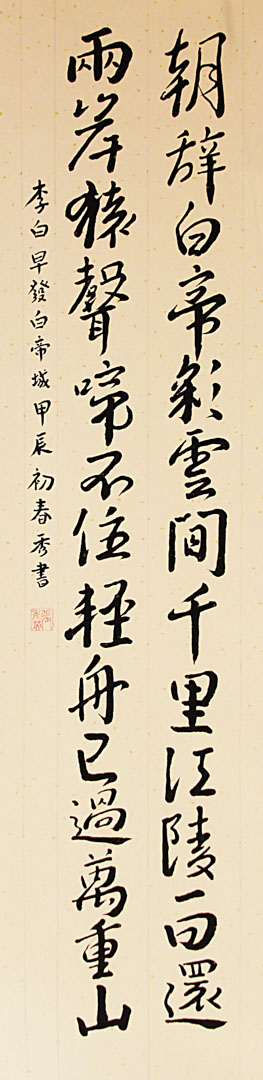 朝辞白帝彩雲間千里江陵一日還
兩岸猿聲啼不住輕舟已過萬重山
李白早發白帝城甲辰初春秀書